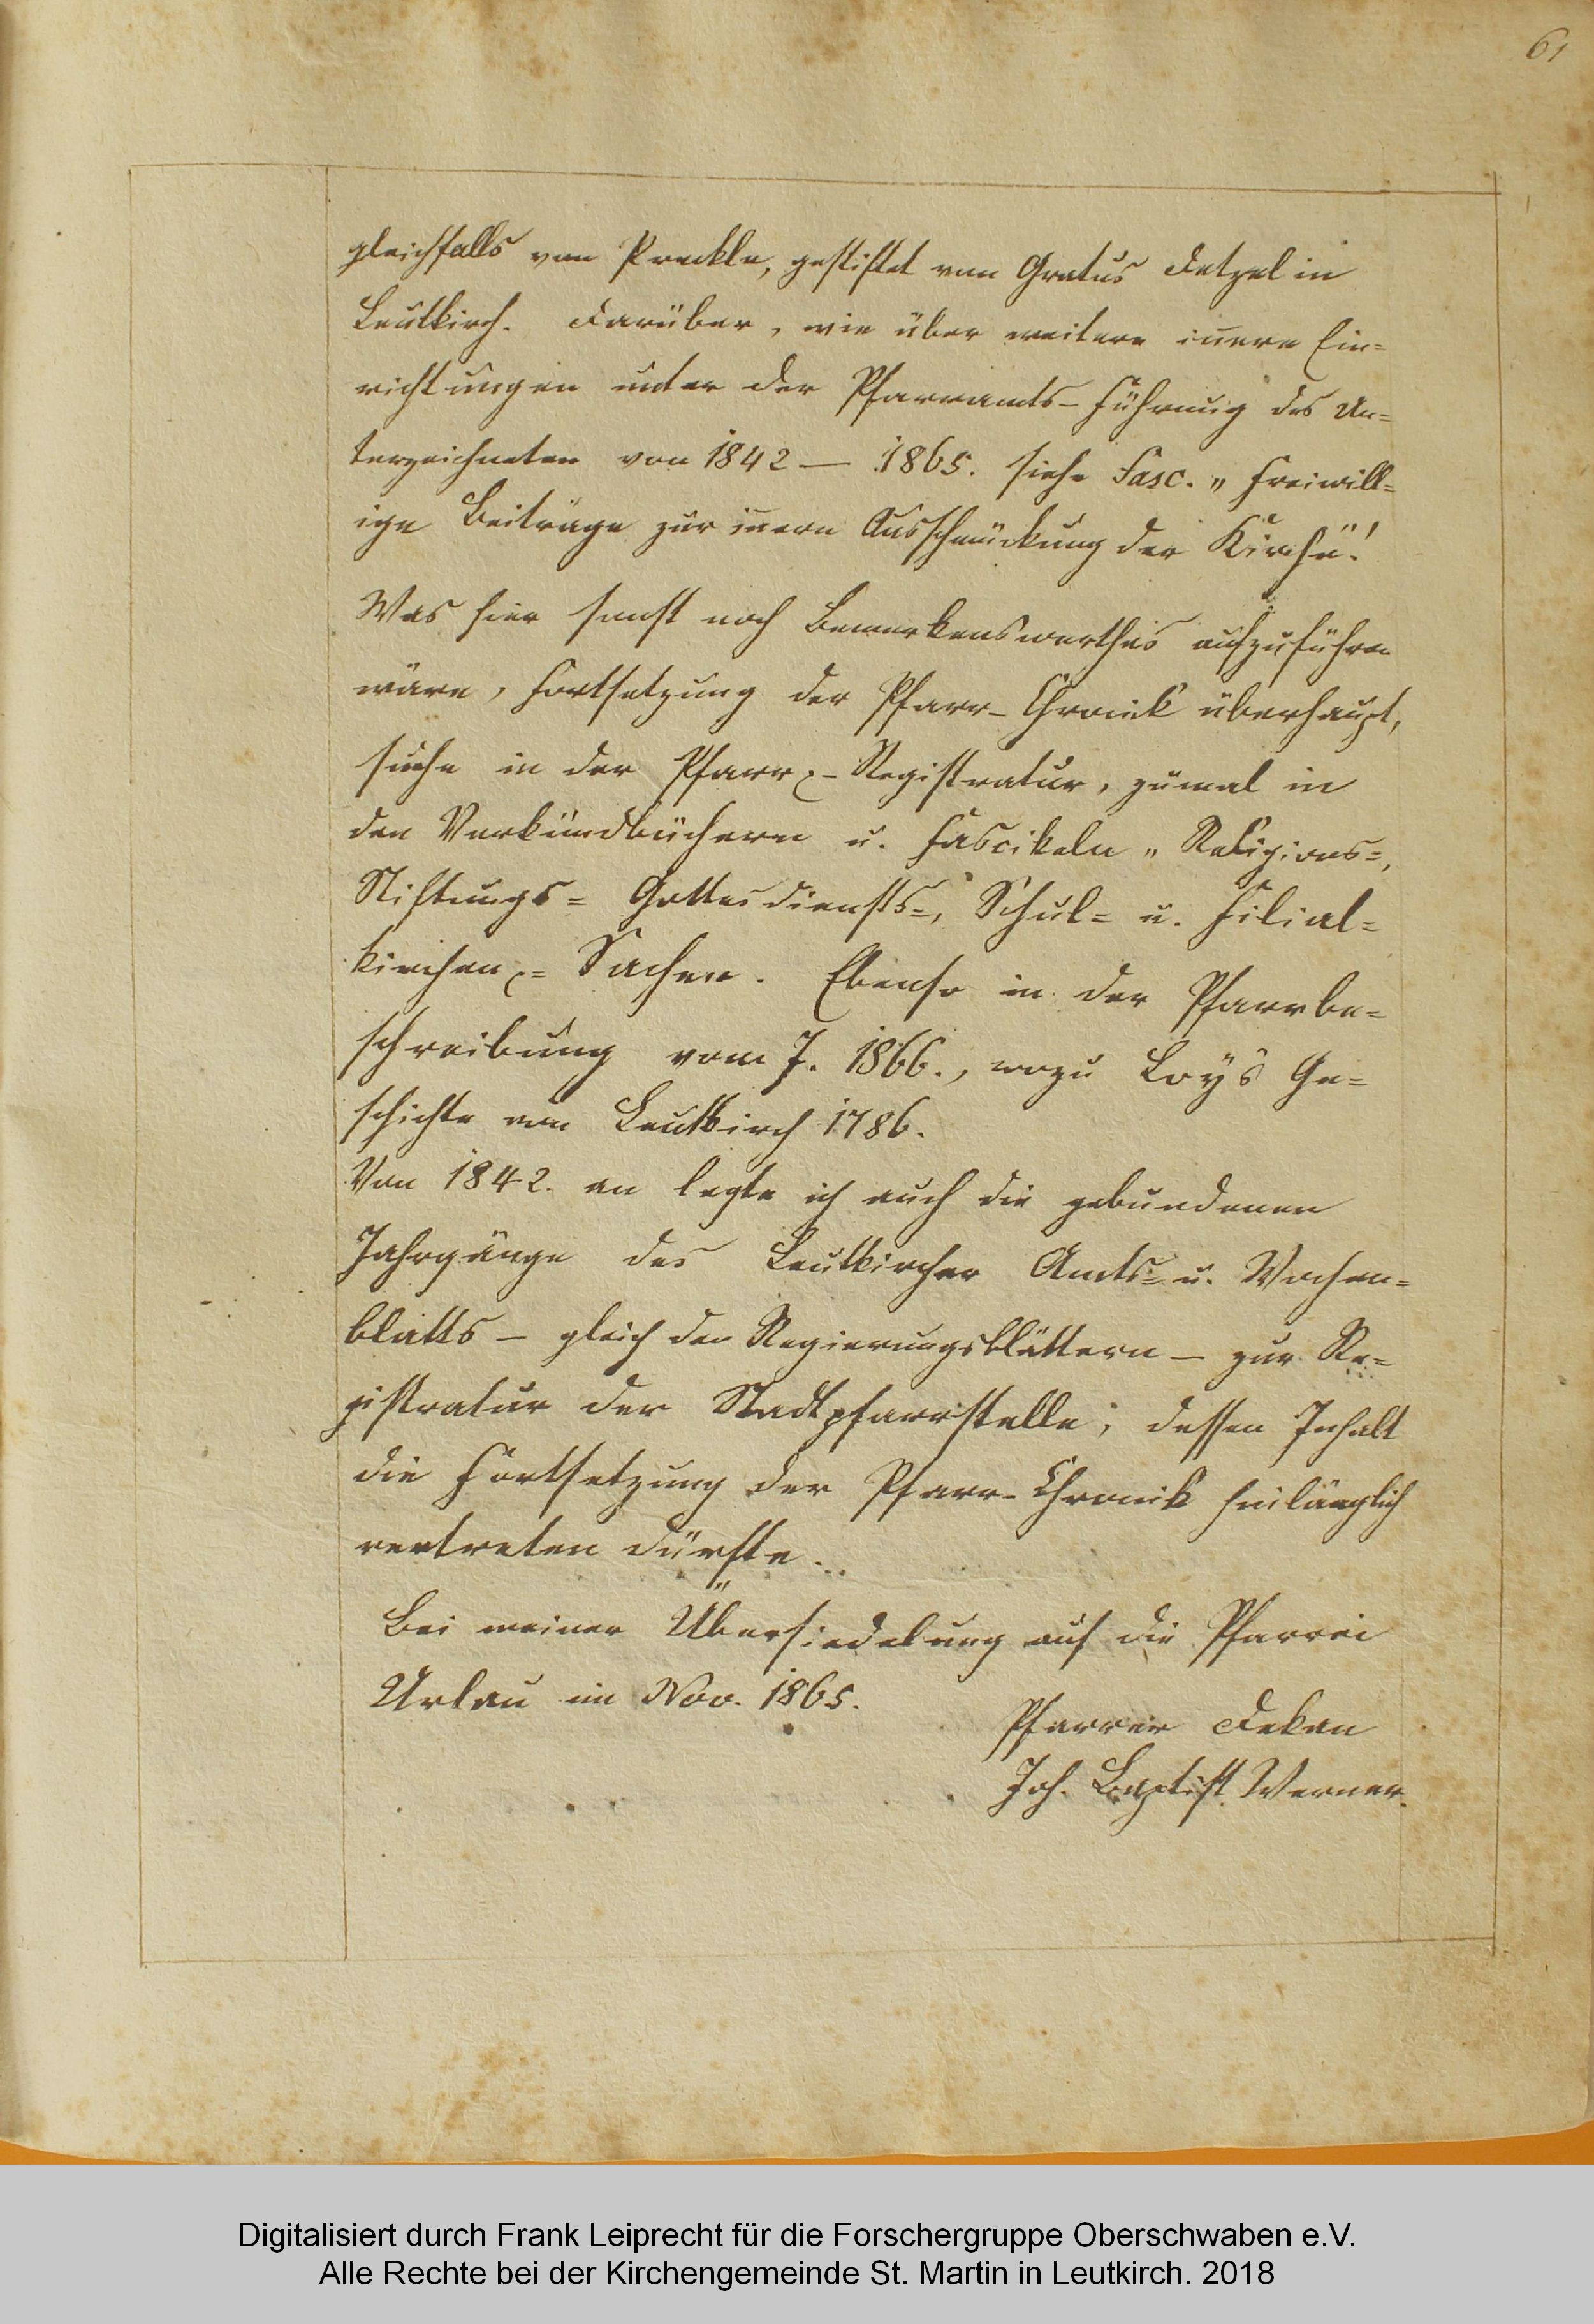 61
gleichfalls von Preckle, gestiftet von Gratus Detzel in
Leutkirch. Darüber, wie über weitere iñere Ein=
richtungen unter der Pfarramts-Führung des Un=
terzeichneten von 1842 — 1865. siehe Fasc. „Freiwill=
ige Beiträge zur iñern Ausschmückung der Kirche“!
Was hier sonst noch Bemerkenswerthes aufzuführen
wäre, Fortsetzung der Pfarr-Chronik überhaupt,
suche in der Pfarr-Registratur, zumal in
den Verkündbüchern u. Fascikeln „Religions=,
Stiftungs= Gottesdiensts=, Schul= u. Filial=
kirchen= Sachen. Ebenso in der Pfarrbe=
schreibung vom J. 1866., wozu Loys Ge=
schichte von Leutkirch 1786.
Von 1842. an legte ich auch die gebundenen
Jahrgänge des Leutkircher Amts= u. Wochen=
blatts — gleich den Regierungsblättern — zur Re=
gistratur der Stadtpfarrstelle, dessen Inhalt
die Fortsetzung der Pfarr-Chronik hinlänglich
vertreten dürfte.
Bei meiner Übersiedelung auf die Pfarrei
Urlau im Nov. 1865.
Pfarrer Dekan
Joh. Baptist Werner.
Digitalisiert durch Frank Leiprecht für die Forschergruppe Oberschwaben e.V.
Alle Rechte bei der Kirchengemeinde St. Martin in Leutkirch. 2018